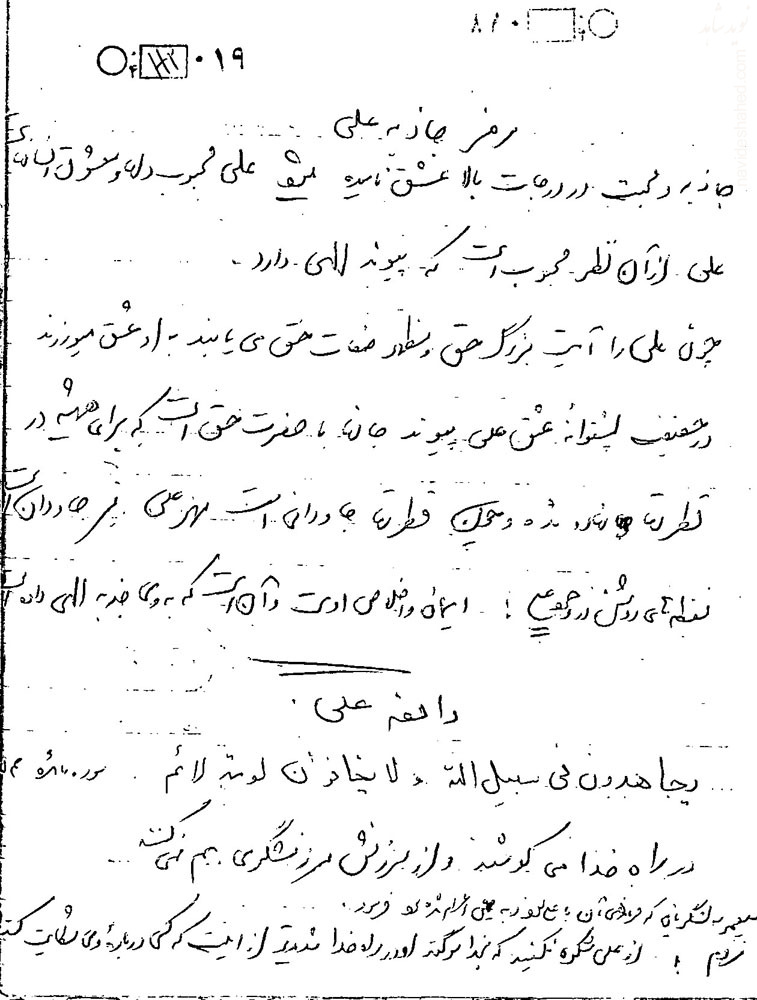 ۸/۰
۰۱۹
رمز جاذبه علی
جاذبه و محبت در درجات بالا عشق نامیده میشود علی محبوب دلها و معشوق انسانها
علی از آن نظر محبوب است که پیوند الهی دارد.
چون علی را آیت بزرگ حق و مظهر صفات حق می یابند به او عشق میورزند
در حقیقت پشتوانهٔ عشق علی پیوند جانها با حضرت حق است که برای همیشه در
فطرتها نهاده شده و چون فطرتها جاودانی است مهر علی نیز جاودان
نقطه های روشن در وجود علی : ایمان و اخلاص اوست و آن است که به وی جذبه الهی داده
دافعه علی
یجاهدون فی سبیل الله و لا یخافون لومة لائم. سوره مائده
در راه خدا می کوشند و از سرزنش سرزنشگری بیم نمی کنند
لشگریان که
مردم ! از علی شکوه نکنید که بخدا سوگند او در راه خدا شدیدتر از اینست که کسی دربارهٔ وی شکایت کند